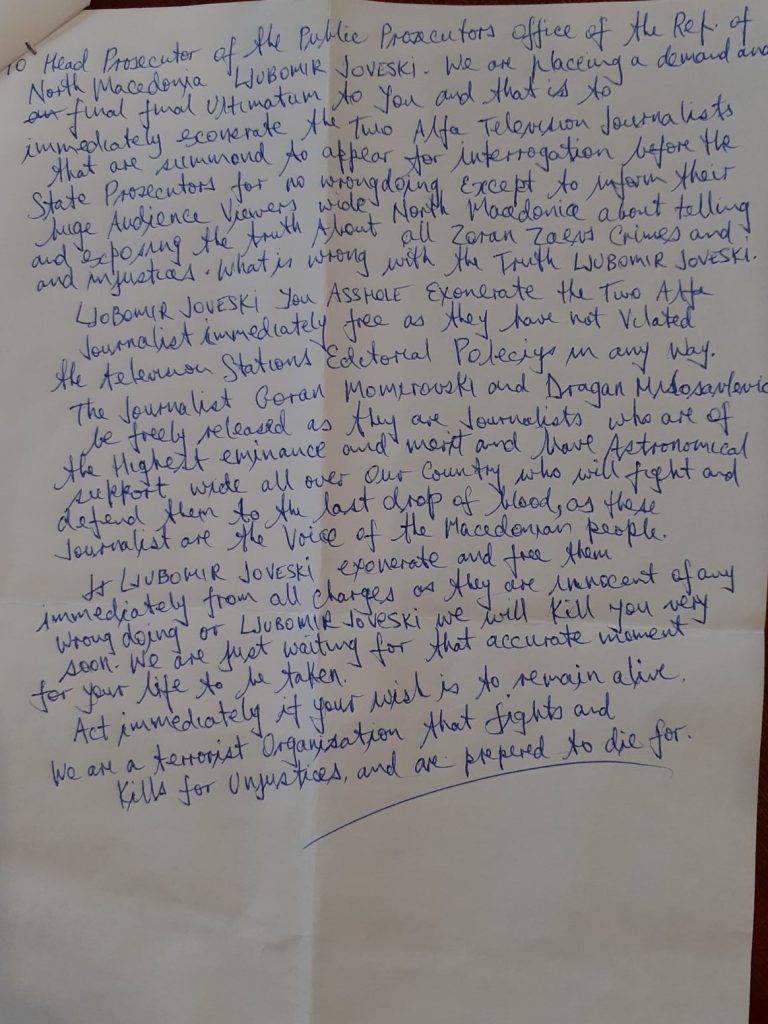 TO Head Prosecutor of the Public Prosecutors Office of the Rep. of
North Macedonia LJUBOMIR JOVESKI. We are placeing a demand and
final final Ultimatum to You and that is to
immediately exonerate the Two Alfa Television Journalists
that are summond to appear for interrogation before the
State Prosecutors for no wrongdoing Except to inform their
huge Audience Viewers wide North Macedonia about telling
and exposing the truth About all Zoran Zaevs Crimes and
and injustices. What is wrong with the Truth LJUBOMIR JOVESKI.
LJUBOMIR JOVESKI You ASSHOLE Exonerate the Two Alfa
Journalist immediately free as they have not Vilated
the television Stations Edetorial Poleciys in any way.
The Journalist Goran Momirovski and Dragan
be freely released as they are Journalists who are of
the Highest eminance and merit and have Astronomical
support wide all over Our Country who will fight and
defend them to the last drop of blood, as these
Journalist are the Voice of the Macedonian people.
LJUBOMIR JOVESKI exonerate and free them
immediately from all charges as they are innocent of any
wrong doing or LJUBOMIR JOVESKI we will kill you very
soon. We are just waiting for that accurate moment
for your life to be taken.
Act immediately if your wish is to remain alive.
We are a terrorist Organisation that fights and
Kills for Unjustices, and are prepered to die for.